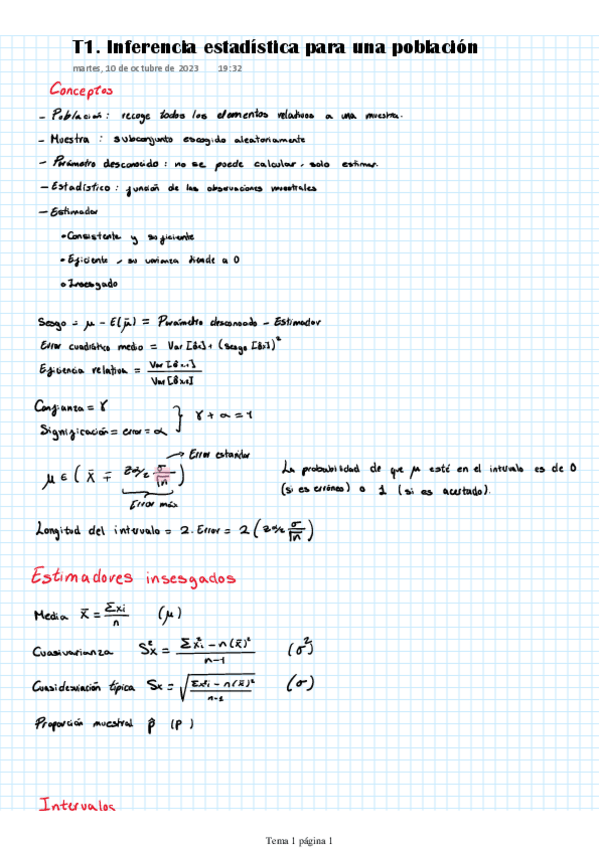 T1. Inferencia estadística para una población
martes, 10 de octubre de 2023 19:32
Conceptos
- Población: recoge todos los elementos relativos a una muestra.
- Muestra: subconjunto escogido aleatoriamente
- Parámetro desconocido: no se puede calcular, solo estimar.
- Estadístico: función de las observaciones muestrales
- Estimador
• Consistente y suficiente
• Eficiente, su varianza tiende a 0
• Insesgado
Sesgo = μ - E(μ̂) = Parámetro desconocido - Estimador
Error cuadrático medio = Var [θ̂x] + (sesgo [θ̂x])²
Eficiencia relativa = Var [θ̂x,1] / Var [θ̂x,2]
Confianza = γ
Significación = error = α } γ + α = 1
→ Error estandar
μ ∈ ( x̄ ∓ zα/2 σ/√n )
Error máx
La probabilidad de que μ esté en el intervalo es de 0
(si es erróneo) o 1 (si es acertado).
Longitud del intervalo = 2 · Error = 2 ( zα/2 σ/√n )
Estimadores insesgados
Media x̄ = Σxi / n (μ)
Cuasivarianza Sx² = Σxi² - n(x̄)² / n-1 (σ²)
Cuasidesviación típica Sx = √ Σxi - n(x̄)² / n-1 (σ)
Proporción muestral p̂ (p)
Intervalos
Tema 1 página 1